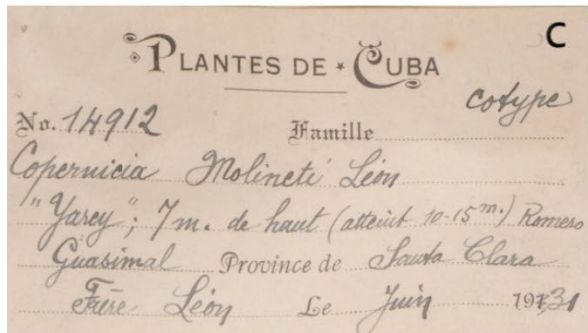 C
PLANTES DE CUBA
cotype
No. 14912 Famille
Copernicia Molineti León
"Yarey"; 7 m. de haut (atteint 10-15 m.) Romero
Guasimal Province de Santa Clara
Frère León Le Juin 1931